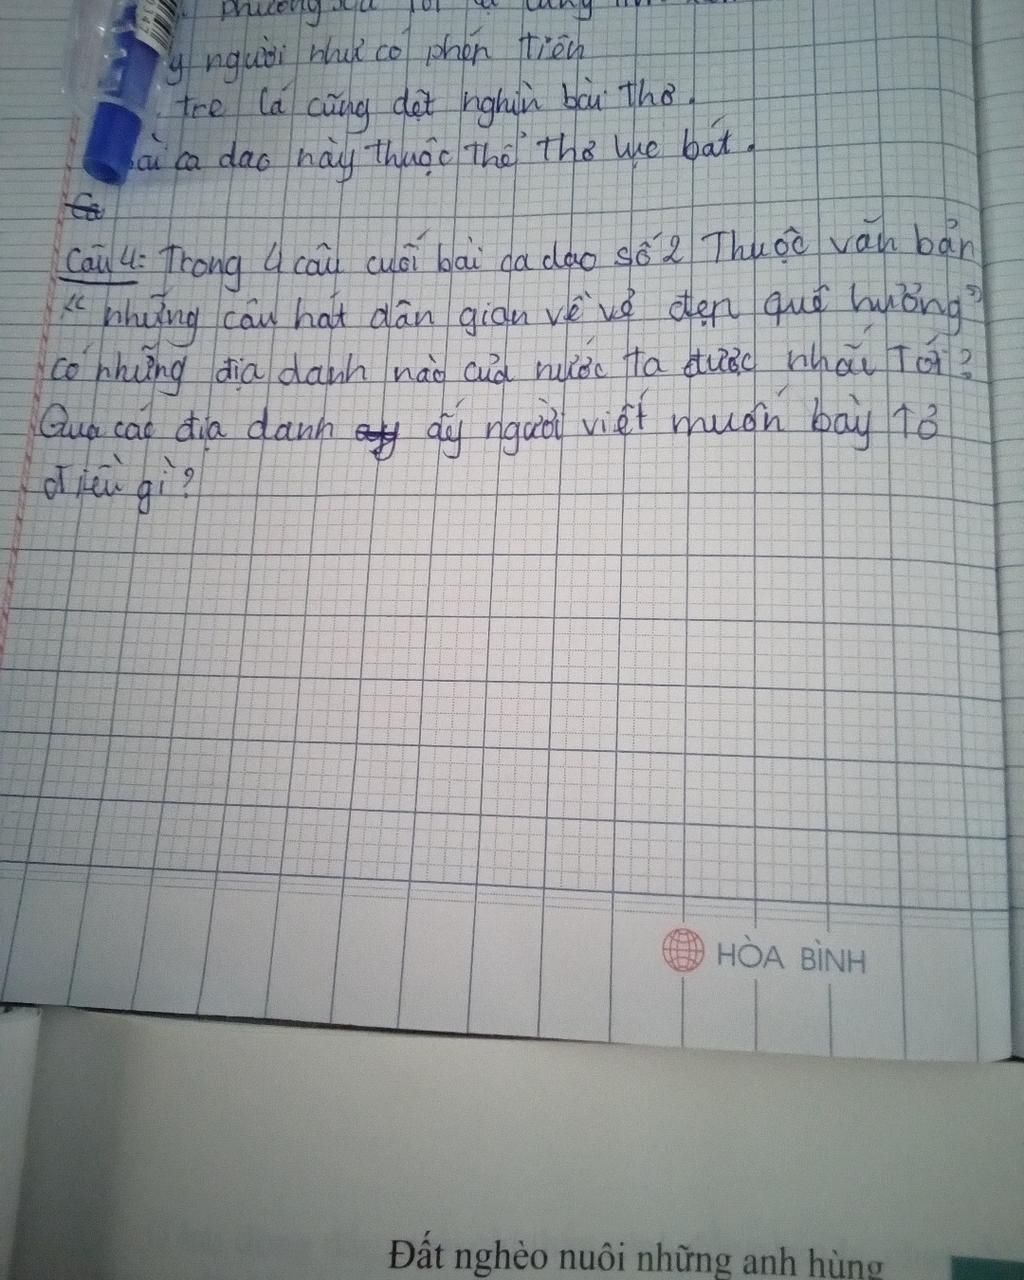 phương xa
y người như có phép tiên
tre lá cũng dệt nghìn bài thơ.
ài ca dao này thuộc thể thơ lục bát.
Câu 4: Trong 4 câu cuối bài ca dao số 2 Thuộc văn bản
" những câu hát dân gian về vẻ đẹp quê hương"
có những địa danh nào của nước ta được nhắc Tới?
Qua các địa danh ấy người viết muốn bày tỏ
điều gì?
HÒA BÌNH
Đất nghèo nuôi những anh hùng